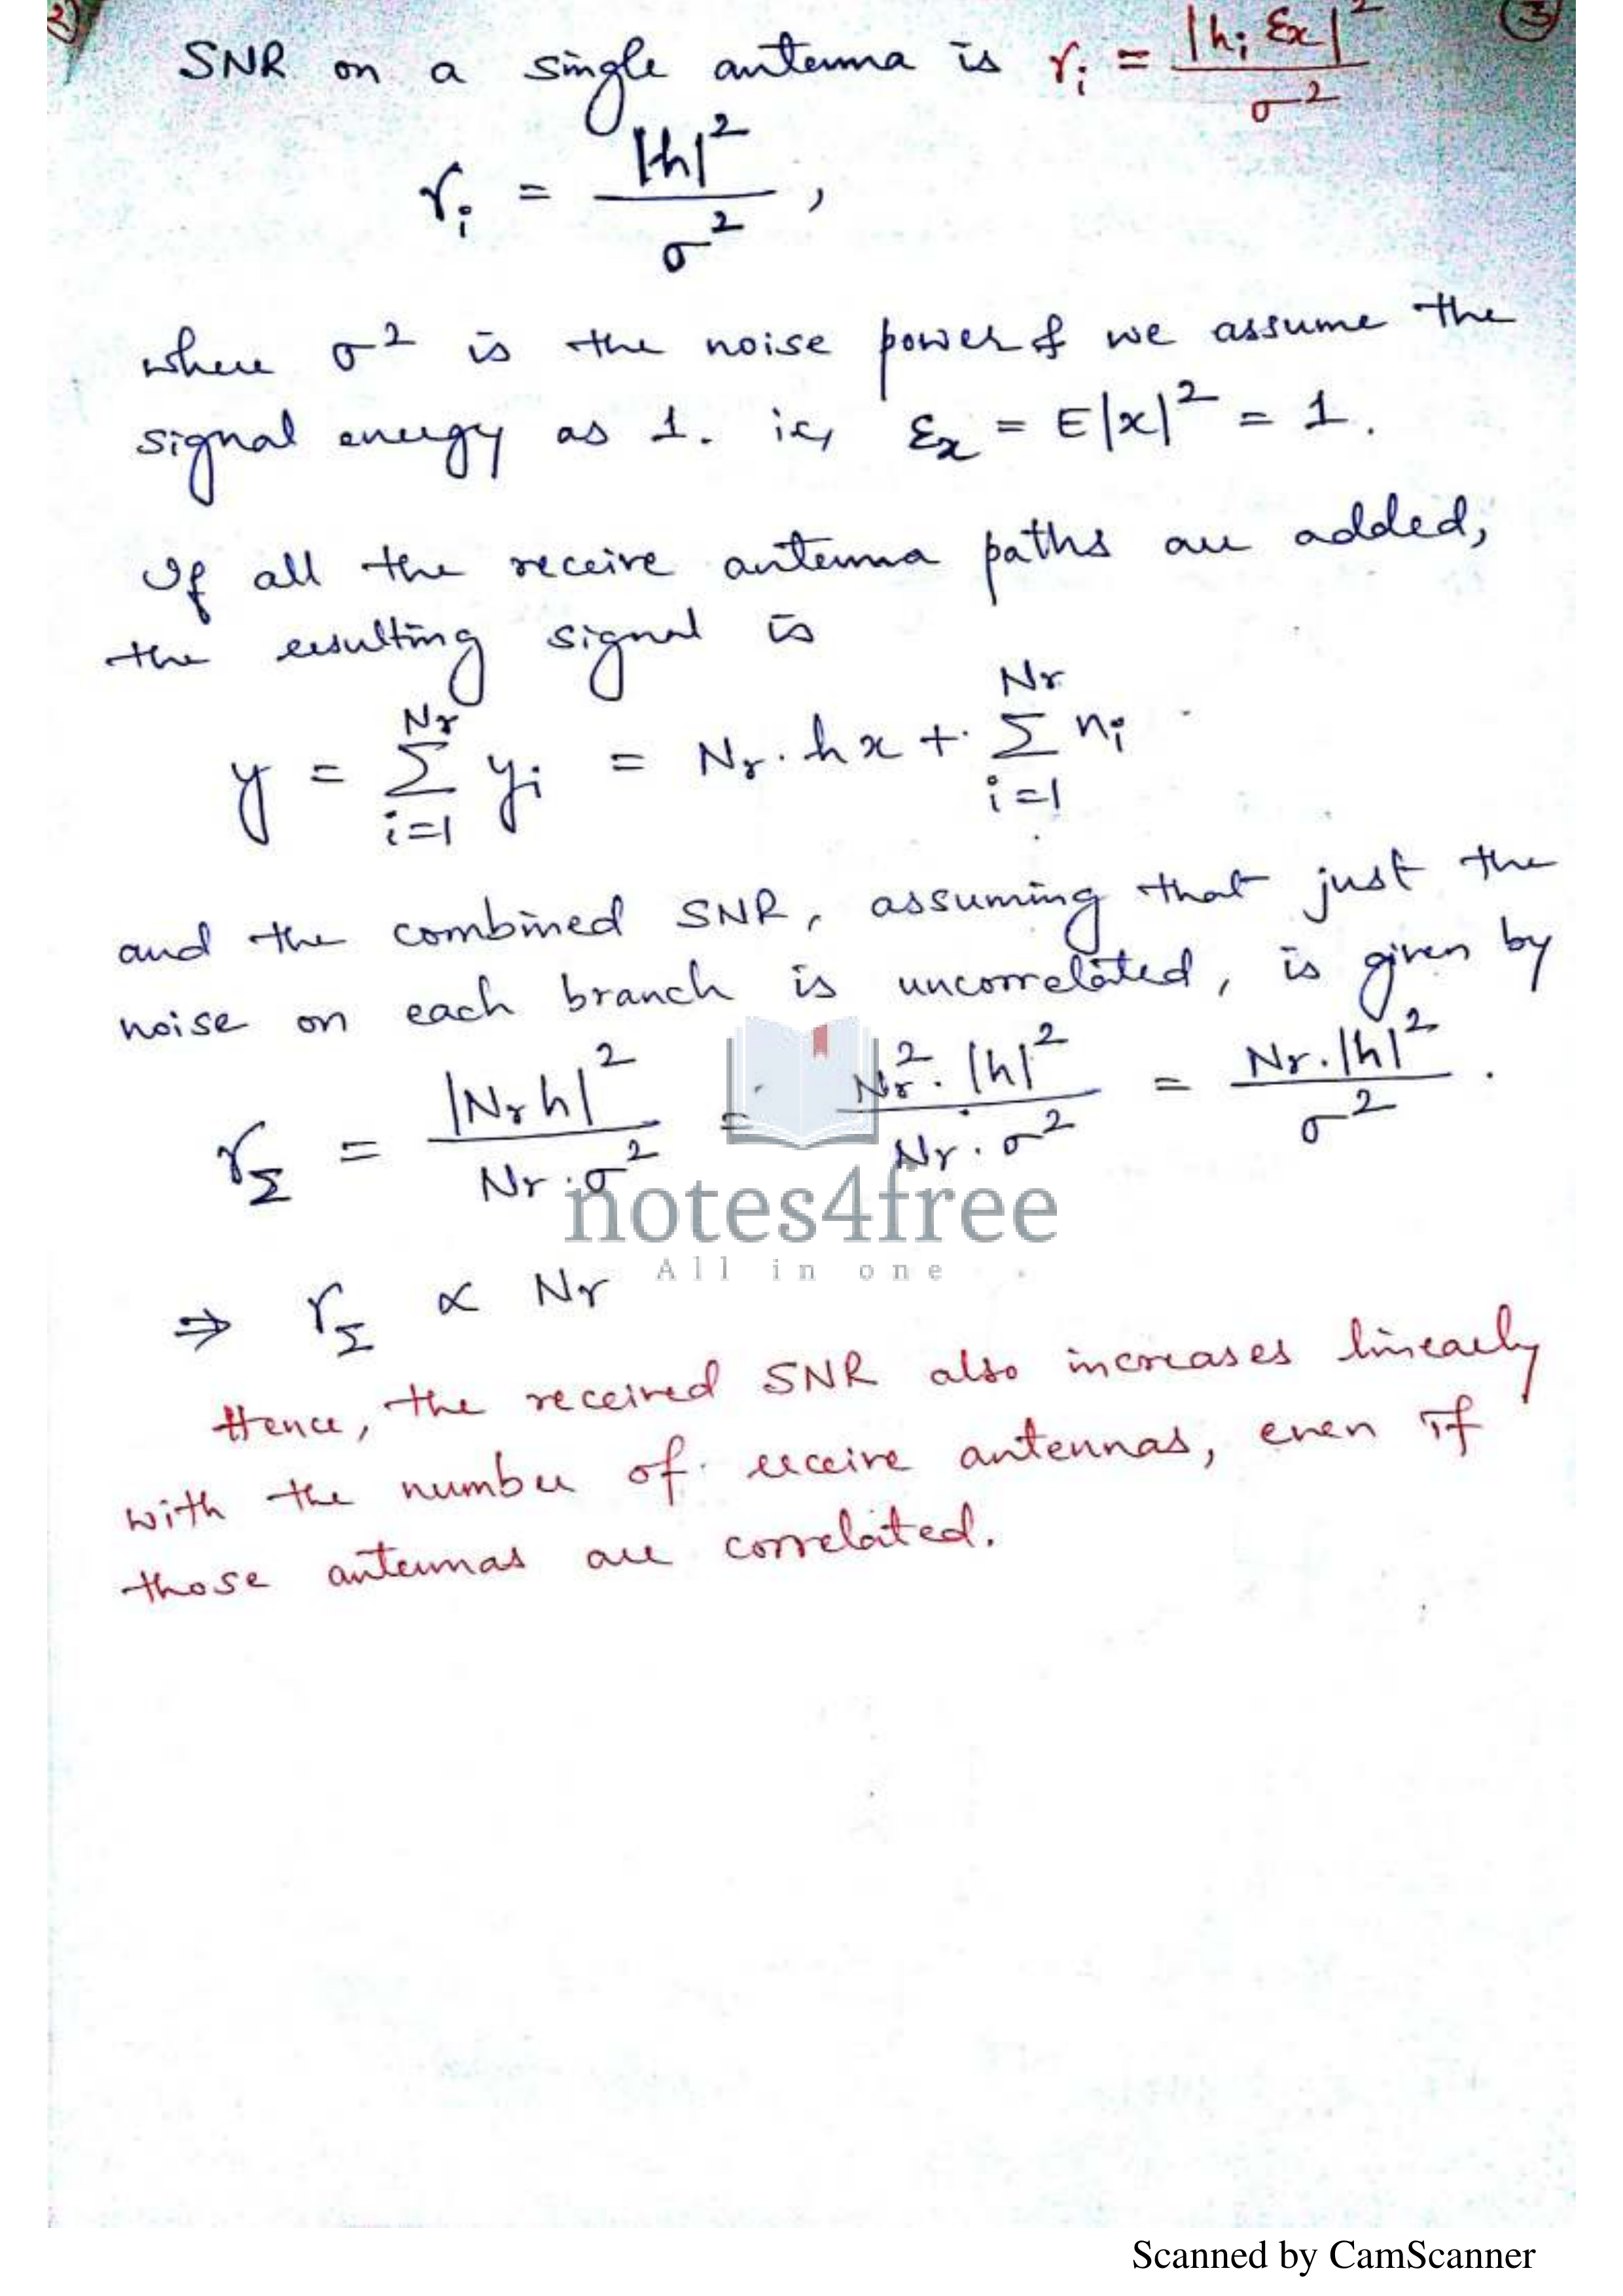 ③
SNR on a single antenna is γᵢ = |hᵢ εx|² / σ²
γᵢ = |h|² / σ² ,
where σ² is the noise power & we assume the
signal energy as 1. ie, εx = E|x|² = 1.
If all the receive antenna paths are added,
the resulting signal is
y = Σ_{i=1}^{Nr} yᵢ = Nr . hx + Σ_{i=1}^{Nr} nᵢ
and the combined SNR, assuming that just the
noise on each branch is uncorrelated, is given by
γ_Σ = |Nr h|² / Nr . σ² = Nr² . |h|² / Nr . σ² = Nr . |h|² / σ² .
notes4free
All in one
⇒ γ_Σ ∝ Nr
Hence, the received SNR also increases linearly
with the number of receive antennas, even if
those antennas are correlated.
Scanned by CamScanner